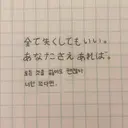 全て失くしてもいい。
あなたさえあれば。
모든 것을 잃어도 괜찮아
너만 있다면.